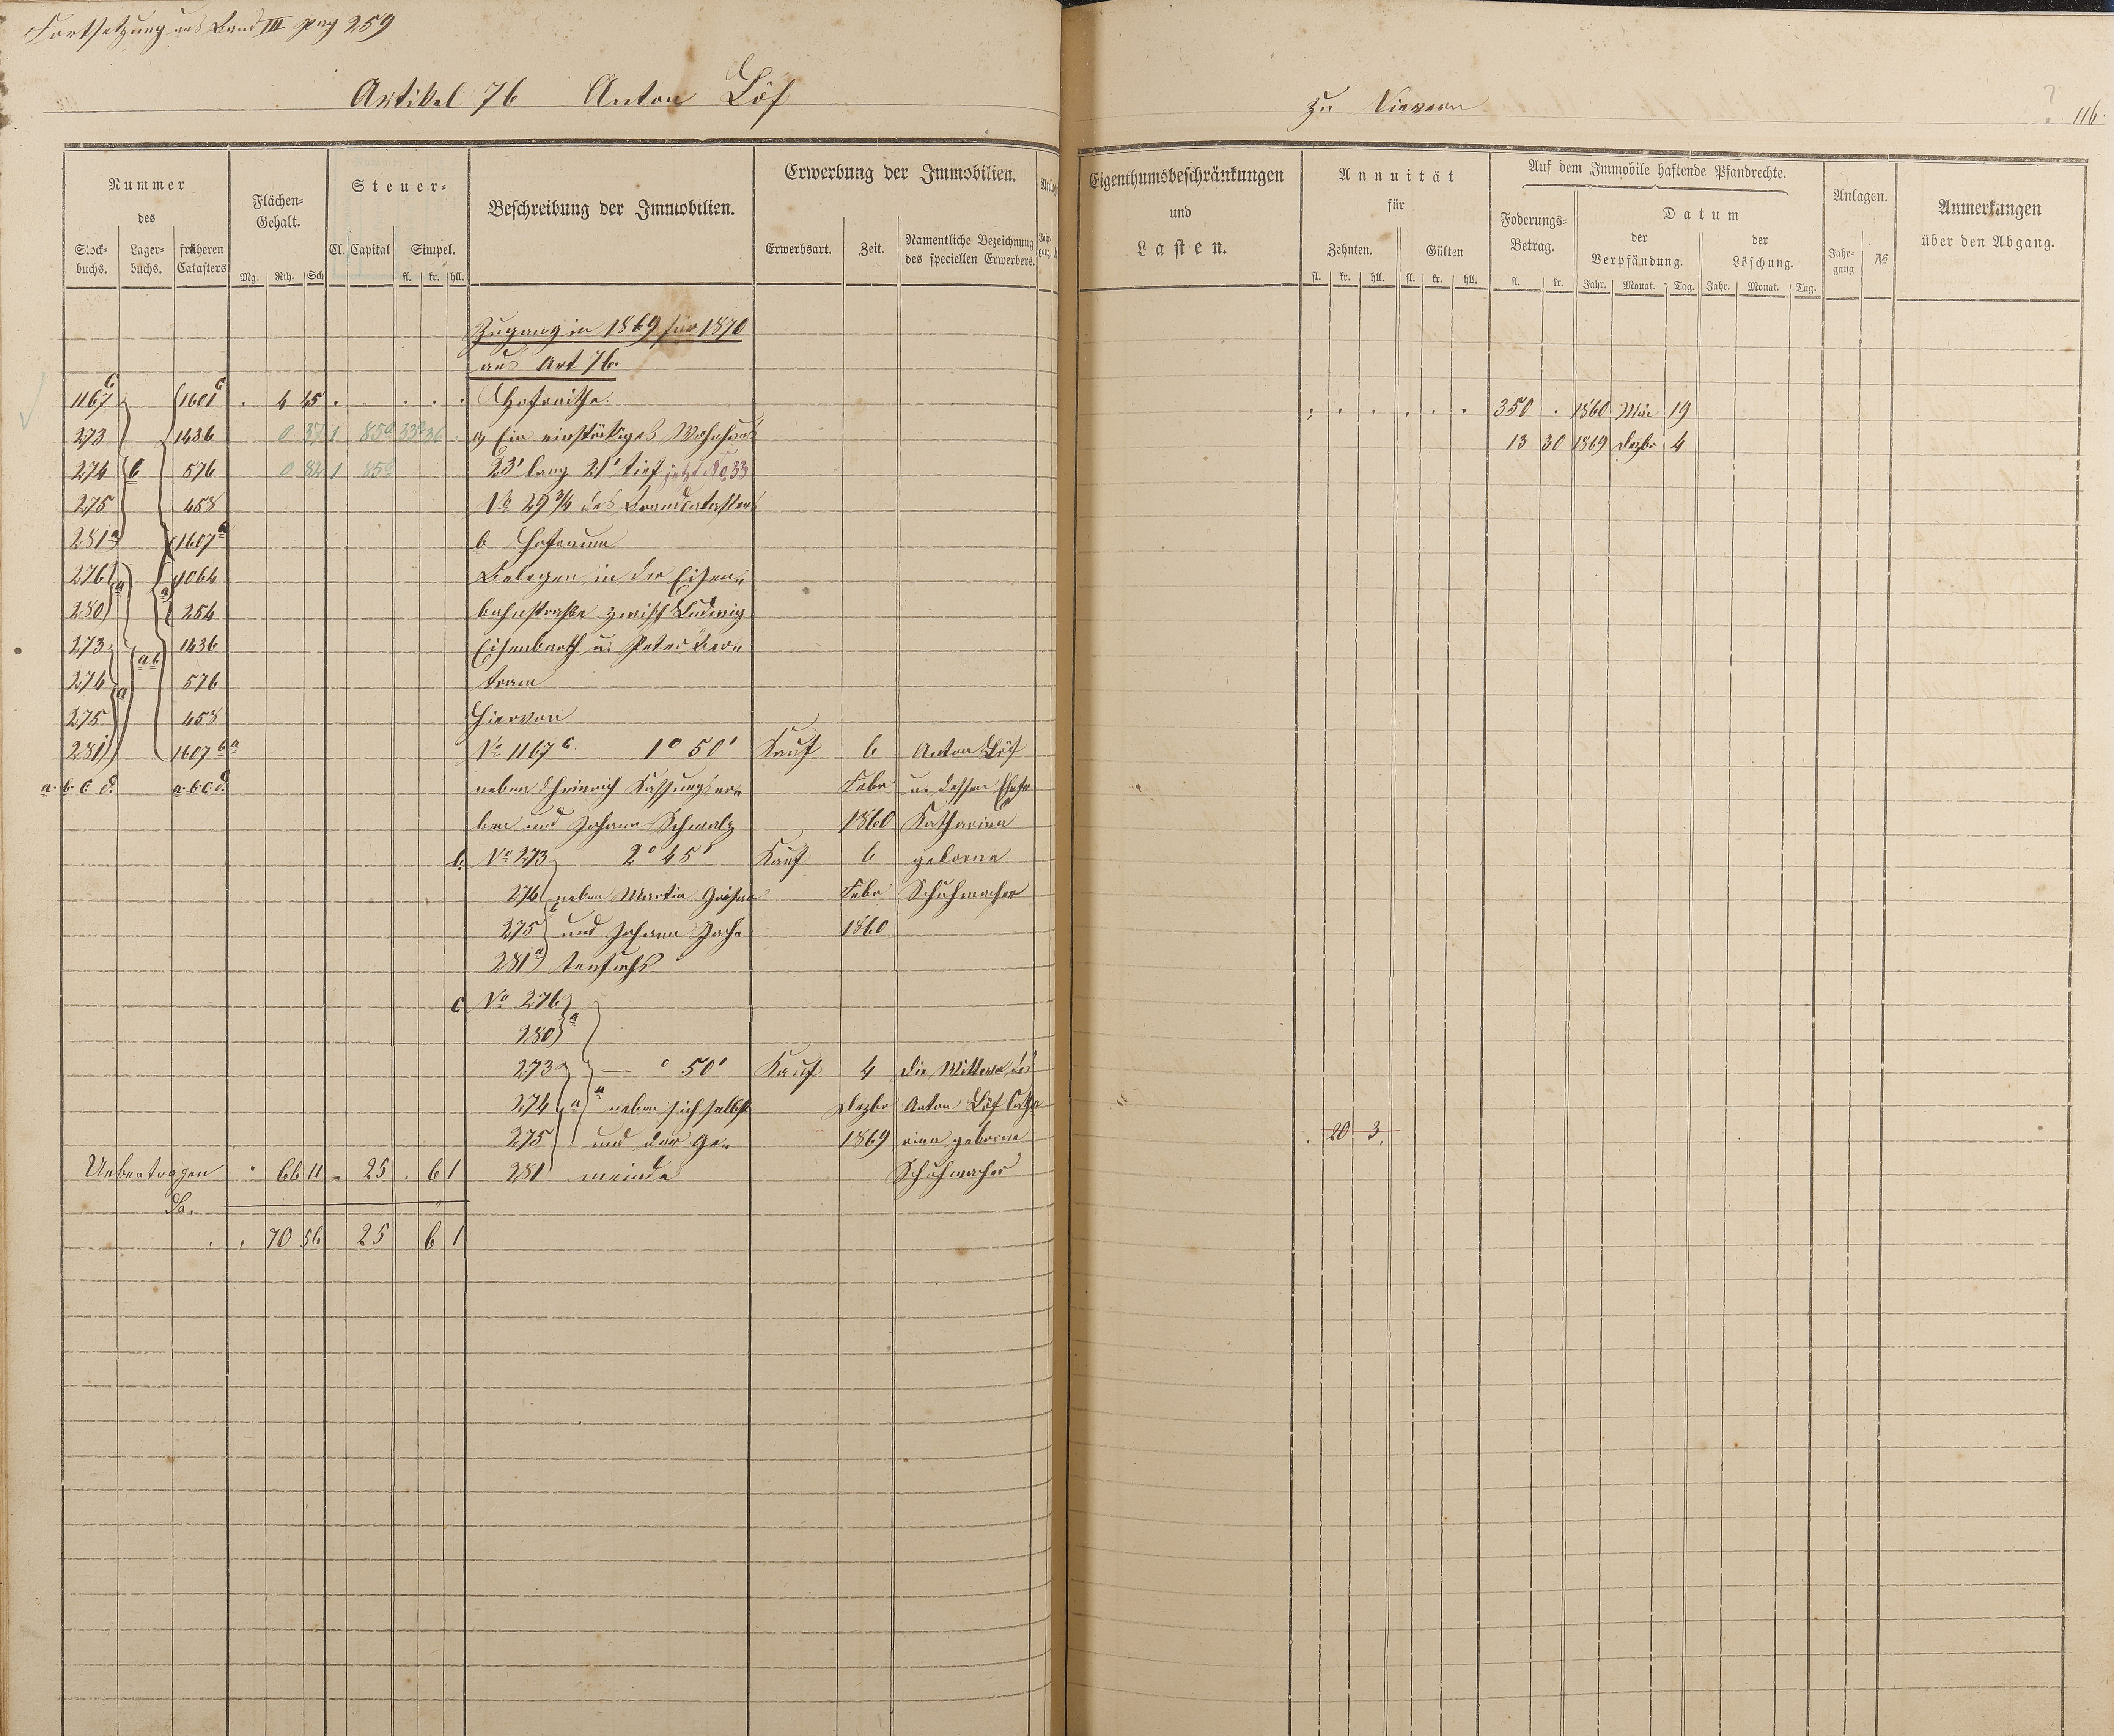 Fortsetzung aus Band III pag 259
Artikel 76 Anton Löf
zu Nievern
? 116.
Nummer
des
Stock-
buchs.
Lager-
buchs.
früheren
Catasters
Flächen-
Gehalt.
Mg. Rth. Sch
Steuer-
Cl. Capital Simpel.
fl. kr. hll.
Beschreibung der Immobilien.
Erwerbung der Immobilien.
Erwerbsart. Zeit. Namentliche Bezeichnung
des speciellen Erwerbers.
Eigenthumsbeschränkungen
und
Lasten.
Annuität
für
Zehnten. Gülten
fl. kr. hll. fl. kr. hll.
Auf dem Immobile haftende Pfandrechte.
Foderungs-
Betrag.
fl. kr.
Datum
der
Verpfändung.
der
Löschung.
Jahr. Monat. Tag. Jahr. Monat. Tag.
Anlagen.
Jahr-
gang №
Anmerkungen
über den Abgang.
Zugang in 1869 für 1870
aus Art 76.
1167 c 1601 c . 4 45 . . . . . Hofraithe. 350 . 1860 Mai 19
273 1436 0 37 1 a, Ein einstöckiges Wohnhaus 13 30 1869 Dezbr 4
274 b 576 0 82 1 23' lang 21' tief jetzt No 33
275 458 No 29 3/4 des Brandcatasters
281 a 1607 a b Hofraum
276 a 1064 Belegen in der Eisen-
280 254 bahnstraße zwisch Ludwig
273 1436 Eisenbarth u. Peter Ber-
274 a b 576 tram
275 458 Hiervon
281 1607 b a No 1167 c 1° 50' Kauf 6 Anton Löf
a. b c d. a. b c d. neben Heinrich Febr u. dessen Ehefr
ben und Johann Schmalz 1860 Katharina
b. No 273 2° 45' Kauf 6 geborne
274 neben Martin Febr Schuhmacher
275 und Johann 1860
281 a
c No 276
280 a
273 — ° 50' Kauf 4 die Wittwe des
274 a a neben sich selbst Dezbr Anton Löf Catha
275 und der Ge- 1869 rina geborne
Uebertragen . 66 11 . 25 . 6 1 281 meinde Schuhmacher . 20 3.
Sa.
. . 70 56 25 6 1